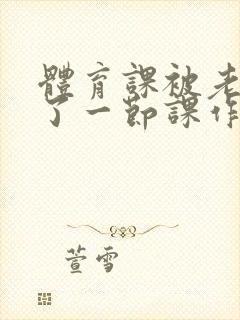 體育課被老
了一節課作
萱雪